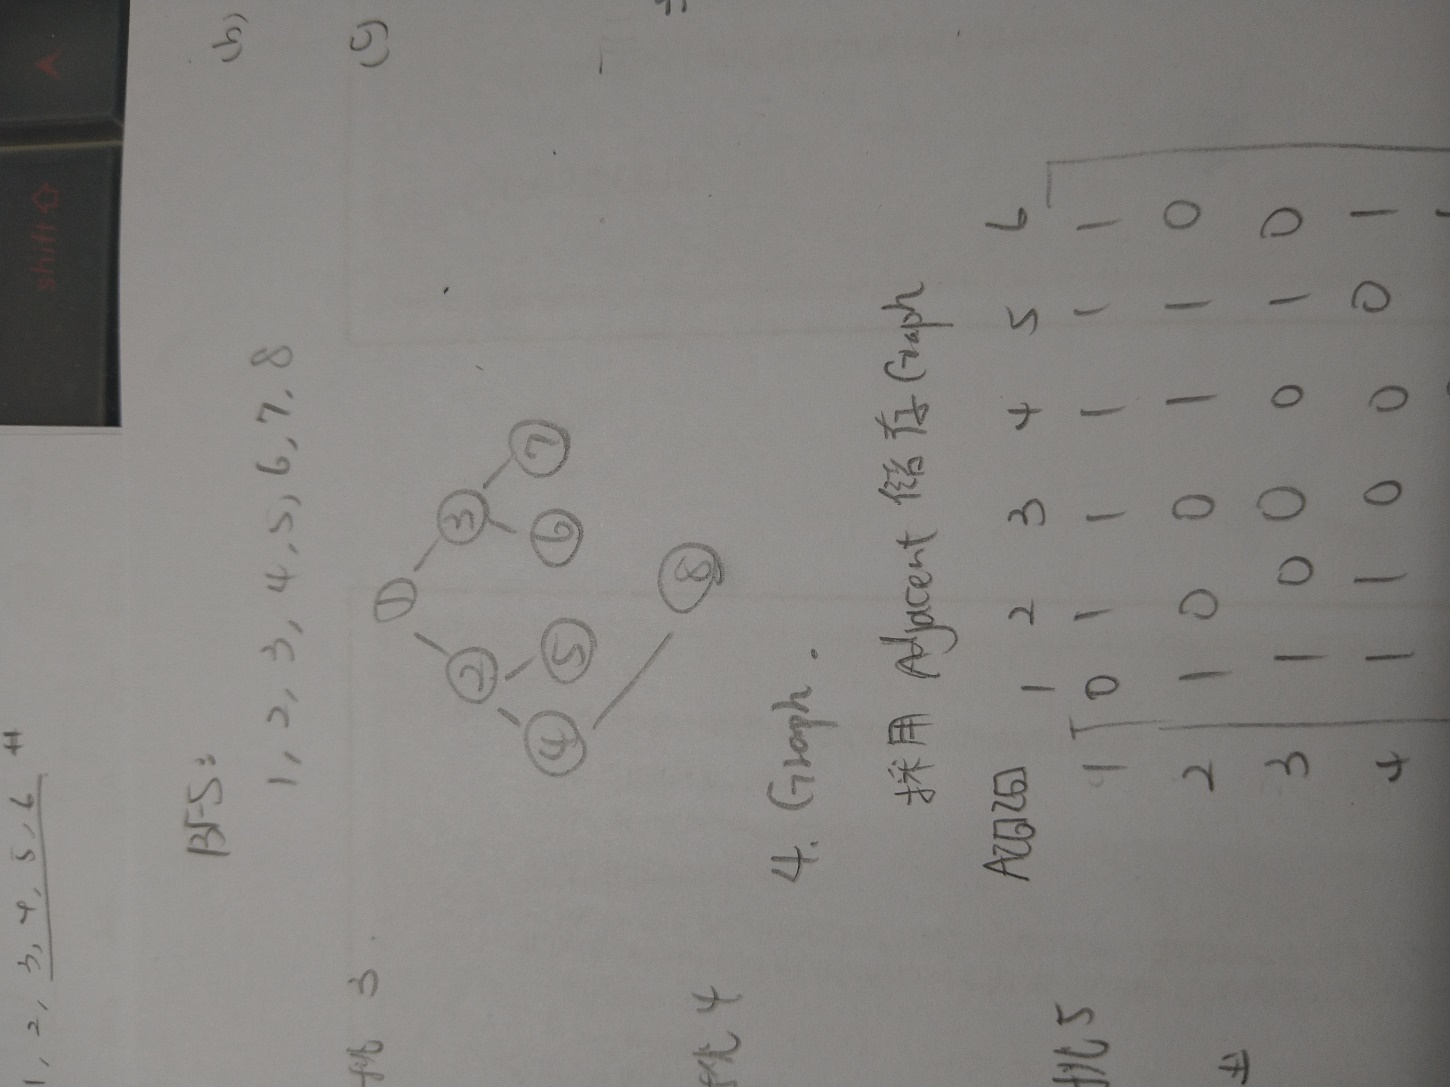 1, 2, 3, 4, 5, 6 #
BFS:
1, 2, 3, 4, 5, 6, 7, 8
(b)
(c)
3.
1
2 3
4 5 6 7
8
4
4. Graph.
採用 Adjacent 儲存 Graph
1 2 3 4 5 6
1 0 1 1 1 1 1
2 1 0 0 1 1 0
3 1 0 0 0 1 0
4 1 1 0 0 0 1
5
shift